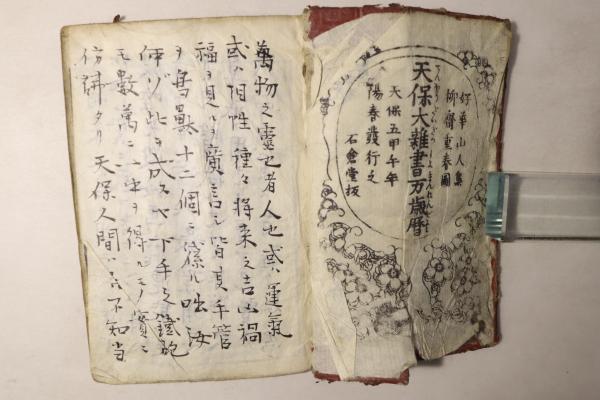 好華山人集
柳齋重春圖
天保大雜書万歳暦
天保五甲午年
陽春發行之
石倉堂板
萬物之靈也者人也或ハ運氣
或ハ相性種々将来之吉凶禍
福ヲ見ルヲ廣言シ皆
ヲ鳥獸十二個ニ係ル咄汝
何ゾ此ヲ成 下手之鐵砲
モ數萬ニ一 ヲ得ルモノ實ニ
タリ天保人間ハ 不知当